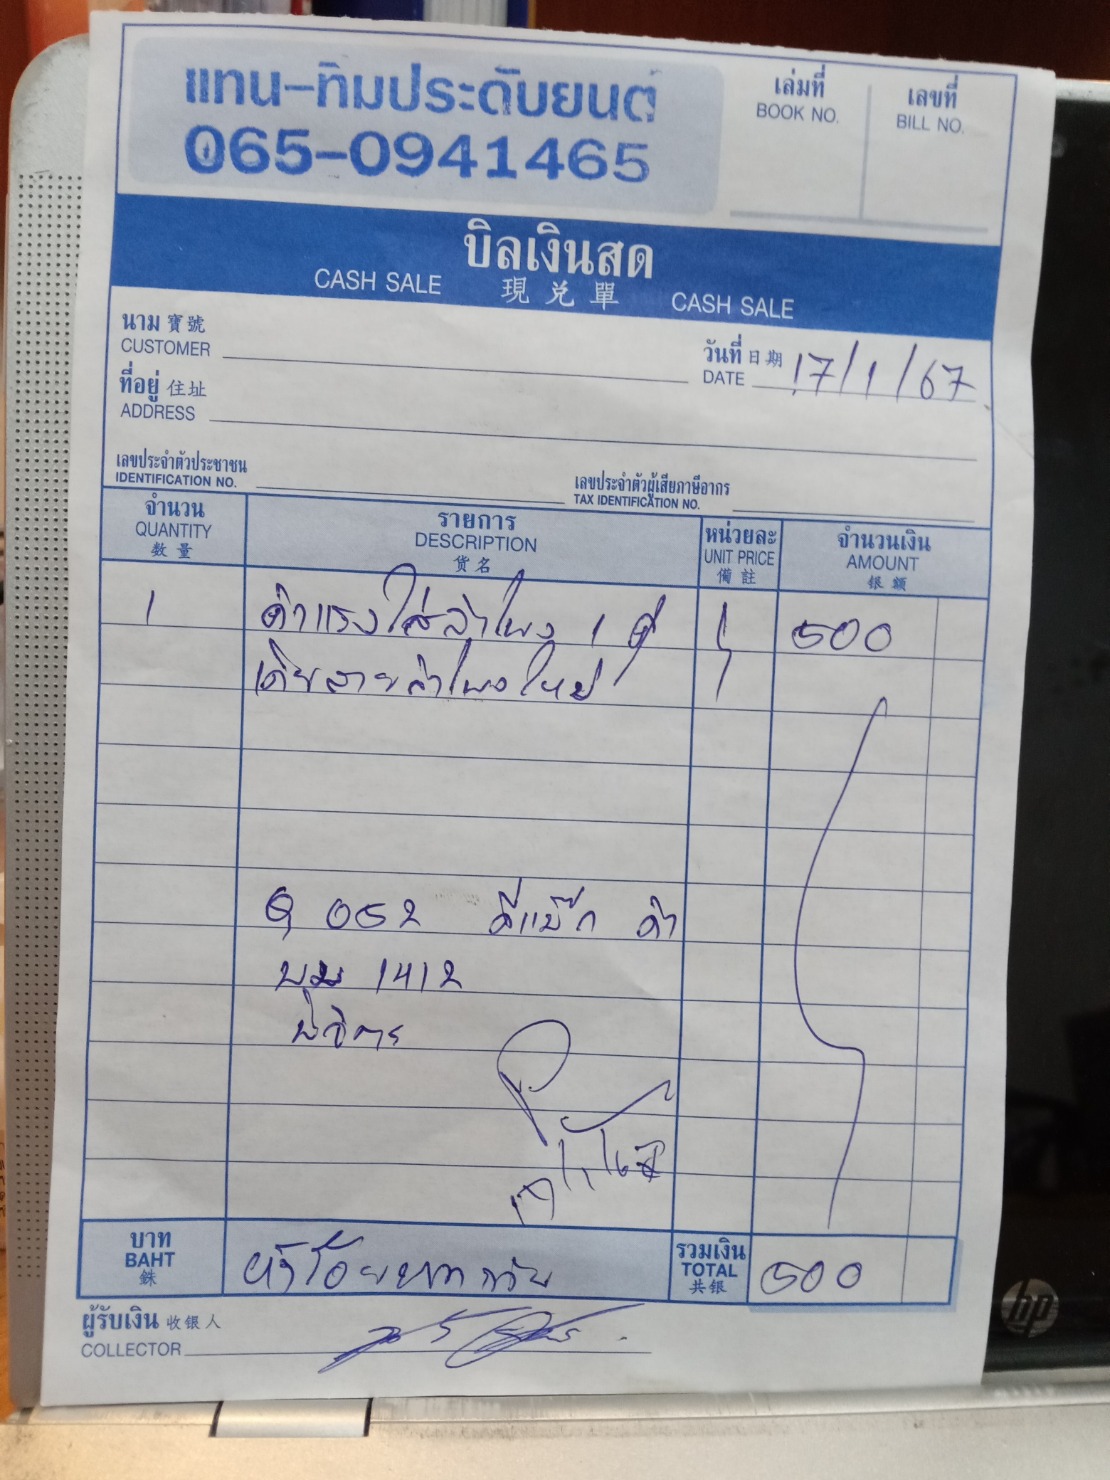 แทน-ทิมประดับยนต์
065-0941465
เล่มที่
BOOK NO.
เลขที่
BILL NO.
บิลเงินสด
CASH SALE 現兑單 CASH SALE
นาม 寶號
CUSTOMER
วันที่ 日期 17/1/67
DATE
ที่อยู่ 住址
ADDRESS
เลขประจำตัวประชาชน
IDENTIFICATION NO.
เลขประจำตัวผู้เสียภาษีอากร
TAX IDENTIFICATION NO.
จำนวน
QUANTITY
数量
รายการ
DESCRIPTION
货名
หน่วยละ
UNIT PRICE
備註
จำนวนเงิน
AMOUNT
银额
1 ค่าแรงใส่ลำโพง 1 คู่ 500
เดินสายลำโพงใหม่
052 ดีแม็ก ดำ
บม 1412
พิจิตร
บาท
BAHT
銖
ห้าร้อยบาทถ้วน
รวมเงิน
TOTAL
共银
500
ผู้รับเงิน 收银人
COLLECTOR
hp